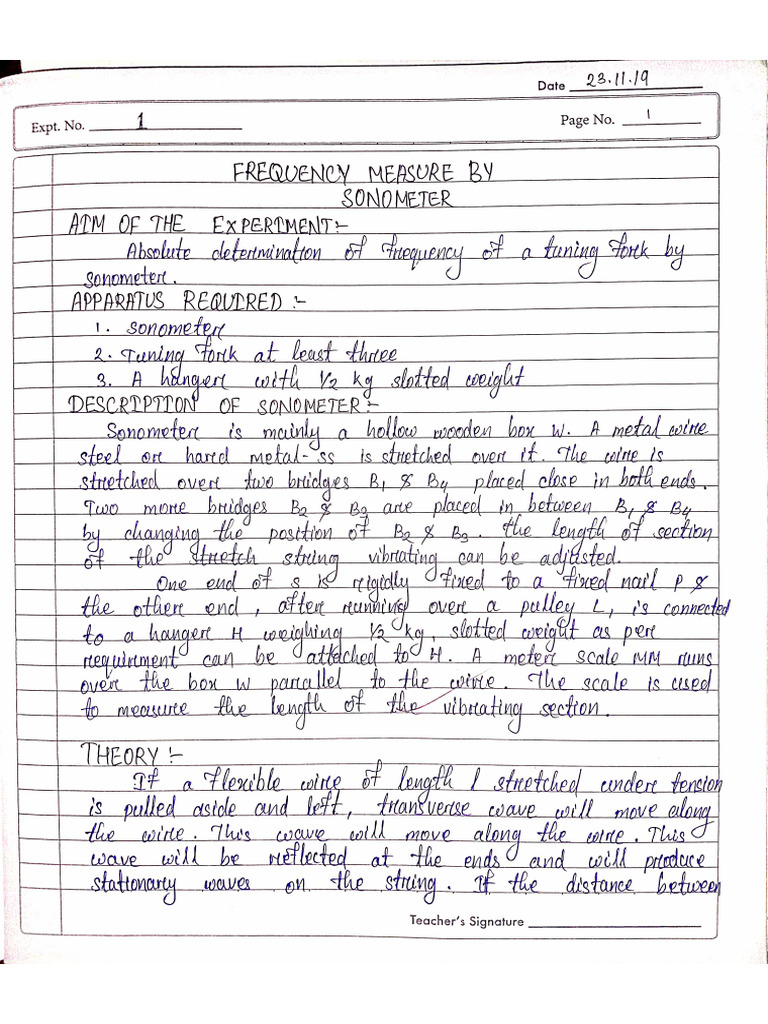 Date 23.11.19
Expt. No. 1
Page No. 1
FREQUENCY MEASURE BY
SONOMETER
AIM OF THE EXPERIMENT:-
Absolute determination of frequency of a tuning fork by
sonometer.
APPARATUS REQUIRED :-
1. Sonometer
2. Tuning fork at least three
3. A hanger with 1/2 kg slotted weight
DESCRIPTION OF SONOMETER:-
Sonometer is mainly a hollow wooden box W. A metal wire
steel or hard metal-ss is stretched over it. The wire is
stretched over two bridges B1 & B4 placed close in both ends.
Two more bridges B2 & B3 are placed in between B1 & B4
by changing the position of B2 & B3. The length of section
of the stretch string vibrating can be adjusted.
One end of s is rigidly fixed to a fixed nail P &
the other end, after running over a pulley L, is connected
to a hanger H weighing 1/2 kg, slotted weight as per
requirment can be attached to H. A meter scale MM runs
over the box W parallel to the wire. The scale is used
to measure the length of the vibrating section.
THEORY :-
If a flexible wire of length l stretched under tension
is pulled aside and left, transverse wave will move along
the wire. This wave will move along the wire. This
wave will be reflected at the ends and will produce
stationary waves on the string. If the distance between
Teacher's Signature